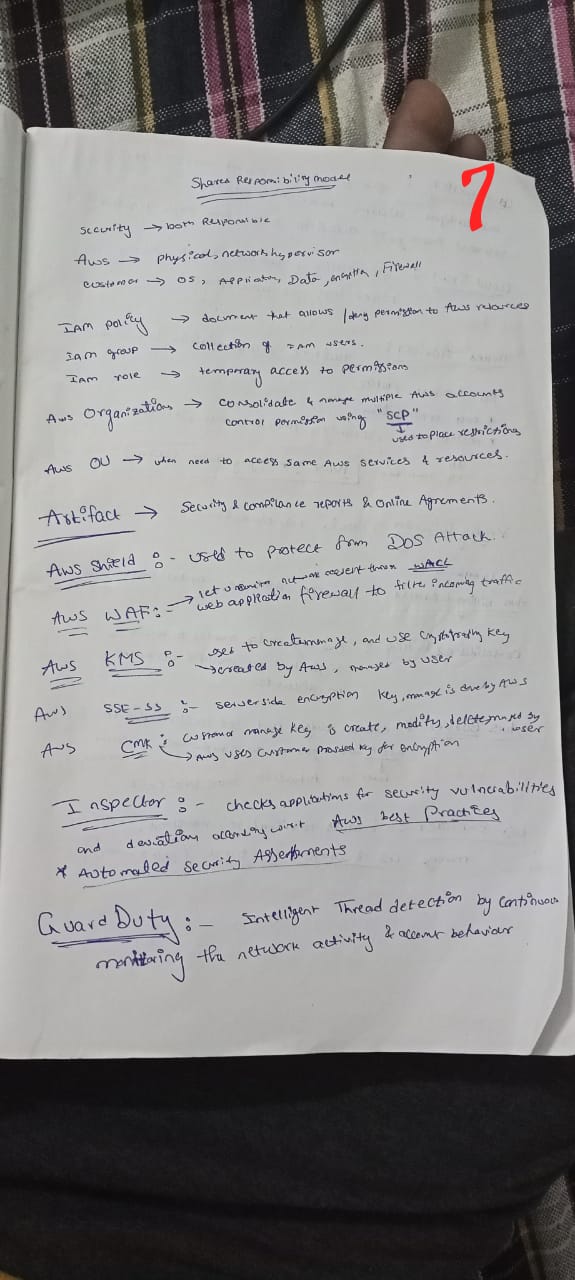 Shared Responsibility model
7
Security → both Responsible
Aws → physical, network, hypervisor
customer → OS, Application, Data, encryption, Firewall
IAM policy → document that allows / deny permission to Aws resources
Iam group → collection of IAM users.
Iam role → temporary access to permissions
Aws Organizations → consolidate & manage multiple Aws accounts
control permission using "SCP"
used to place restrictions
Aws OU → when need to access same Aws services & resources.
Artifact → Security & compilance reports & Online Agrements.
Aws Shield :- used to protect from DoS Attack.
→ let u monitor network request throu WACL
Aws WAF:- web application firewall to filter incoming traffic
Aws KMS :- used to create, manage, and use cryptography key
→ created by Aws, managed by user
Aws SSE-S3 :- serverside encryption key, manage is done by AWS
Aws CMK : customer manage key is create, modify, delete, managed by user
→ Aws uses customer provided key for encryption
Inspector :- checks applications for security vulnerabilities
and deviation Aws best Practices
* Automated Security Assessments
GuardDuty :- Intelligent Thread detection by continuous
monitoring the network activity & account behaviour